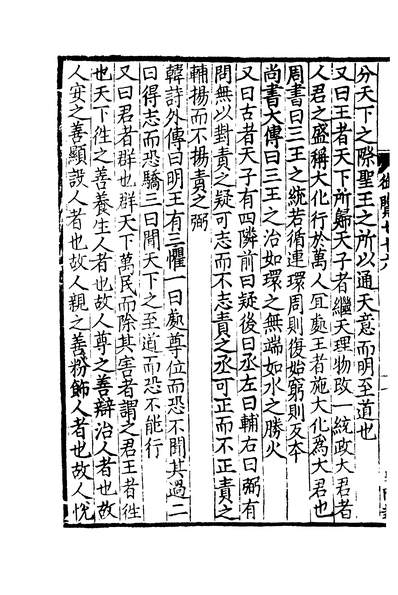 御覽七十六
分天下之際聖王之所以通天意而明至道也
又曰王者天下所歸天子者繼天理物攺一統政大君者
人君之盛稱大化行於萬人冝處王者施大化為大君也
周書曰三王之統若循連環周則復始窮則反夲
尚書大傳曰三王之治如環之無端如水之勝火
又曰古者天子有四隣前曰疑後曰丞左曰輔右曰弼有
問無以對責之疑可志而不志責之丞可正而不正責之
輔揚而不揚責之弼
韓詩外傳曰明王有三懼一曰處尊位而恐不聞其過二
曰得志而恐驕三曰聞天下之至道而恐不能行
又曰君者群也群天下萬民而除其害者謂之君王者徃
也天下徃之善養生人者也故人尊之善辯治人者也故
人安之善顯設人者也故人親之善粉飾人者也故人恱